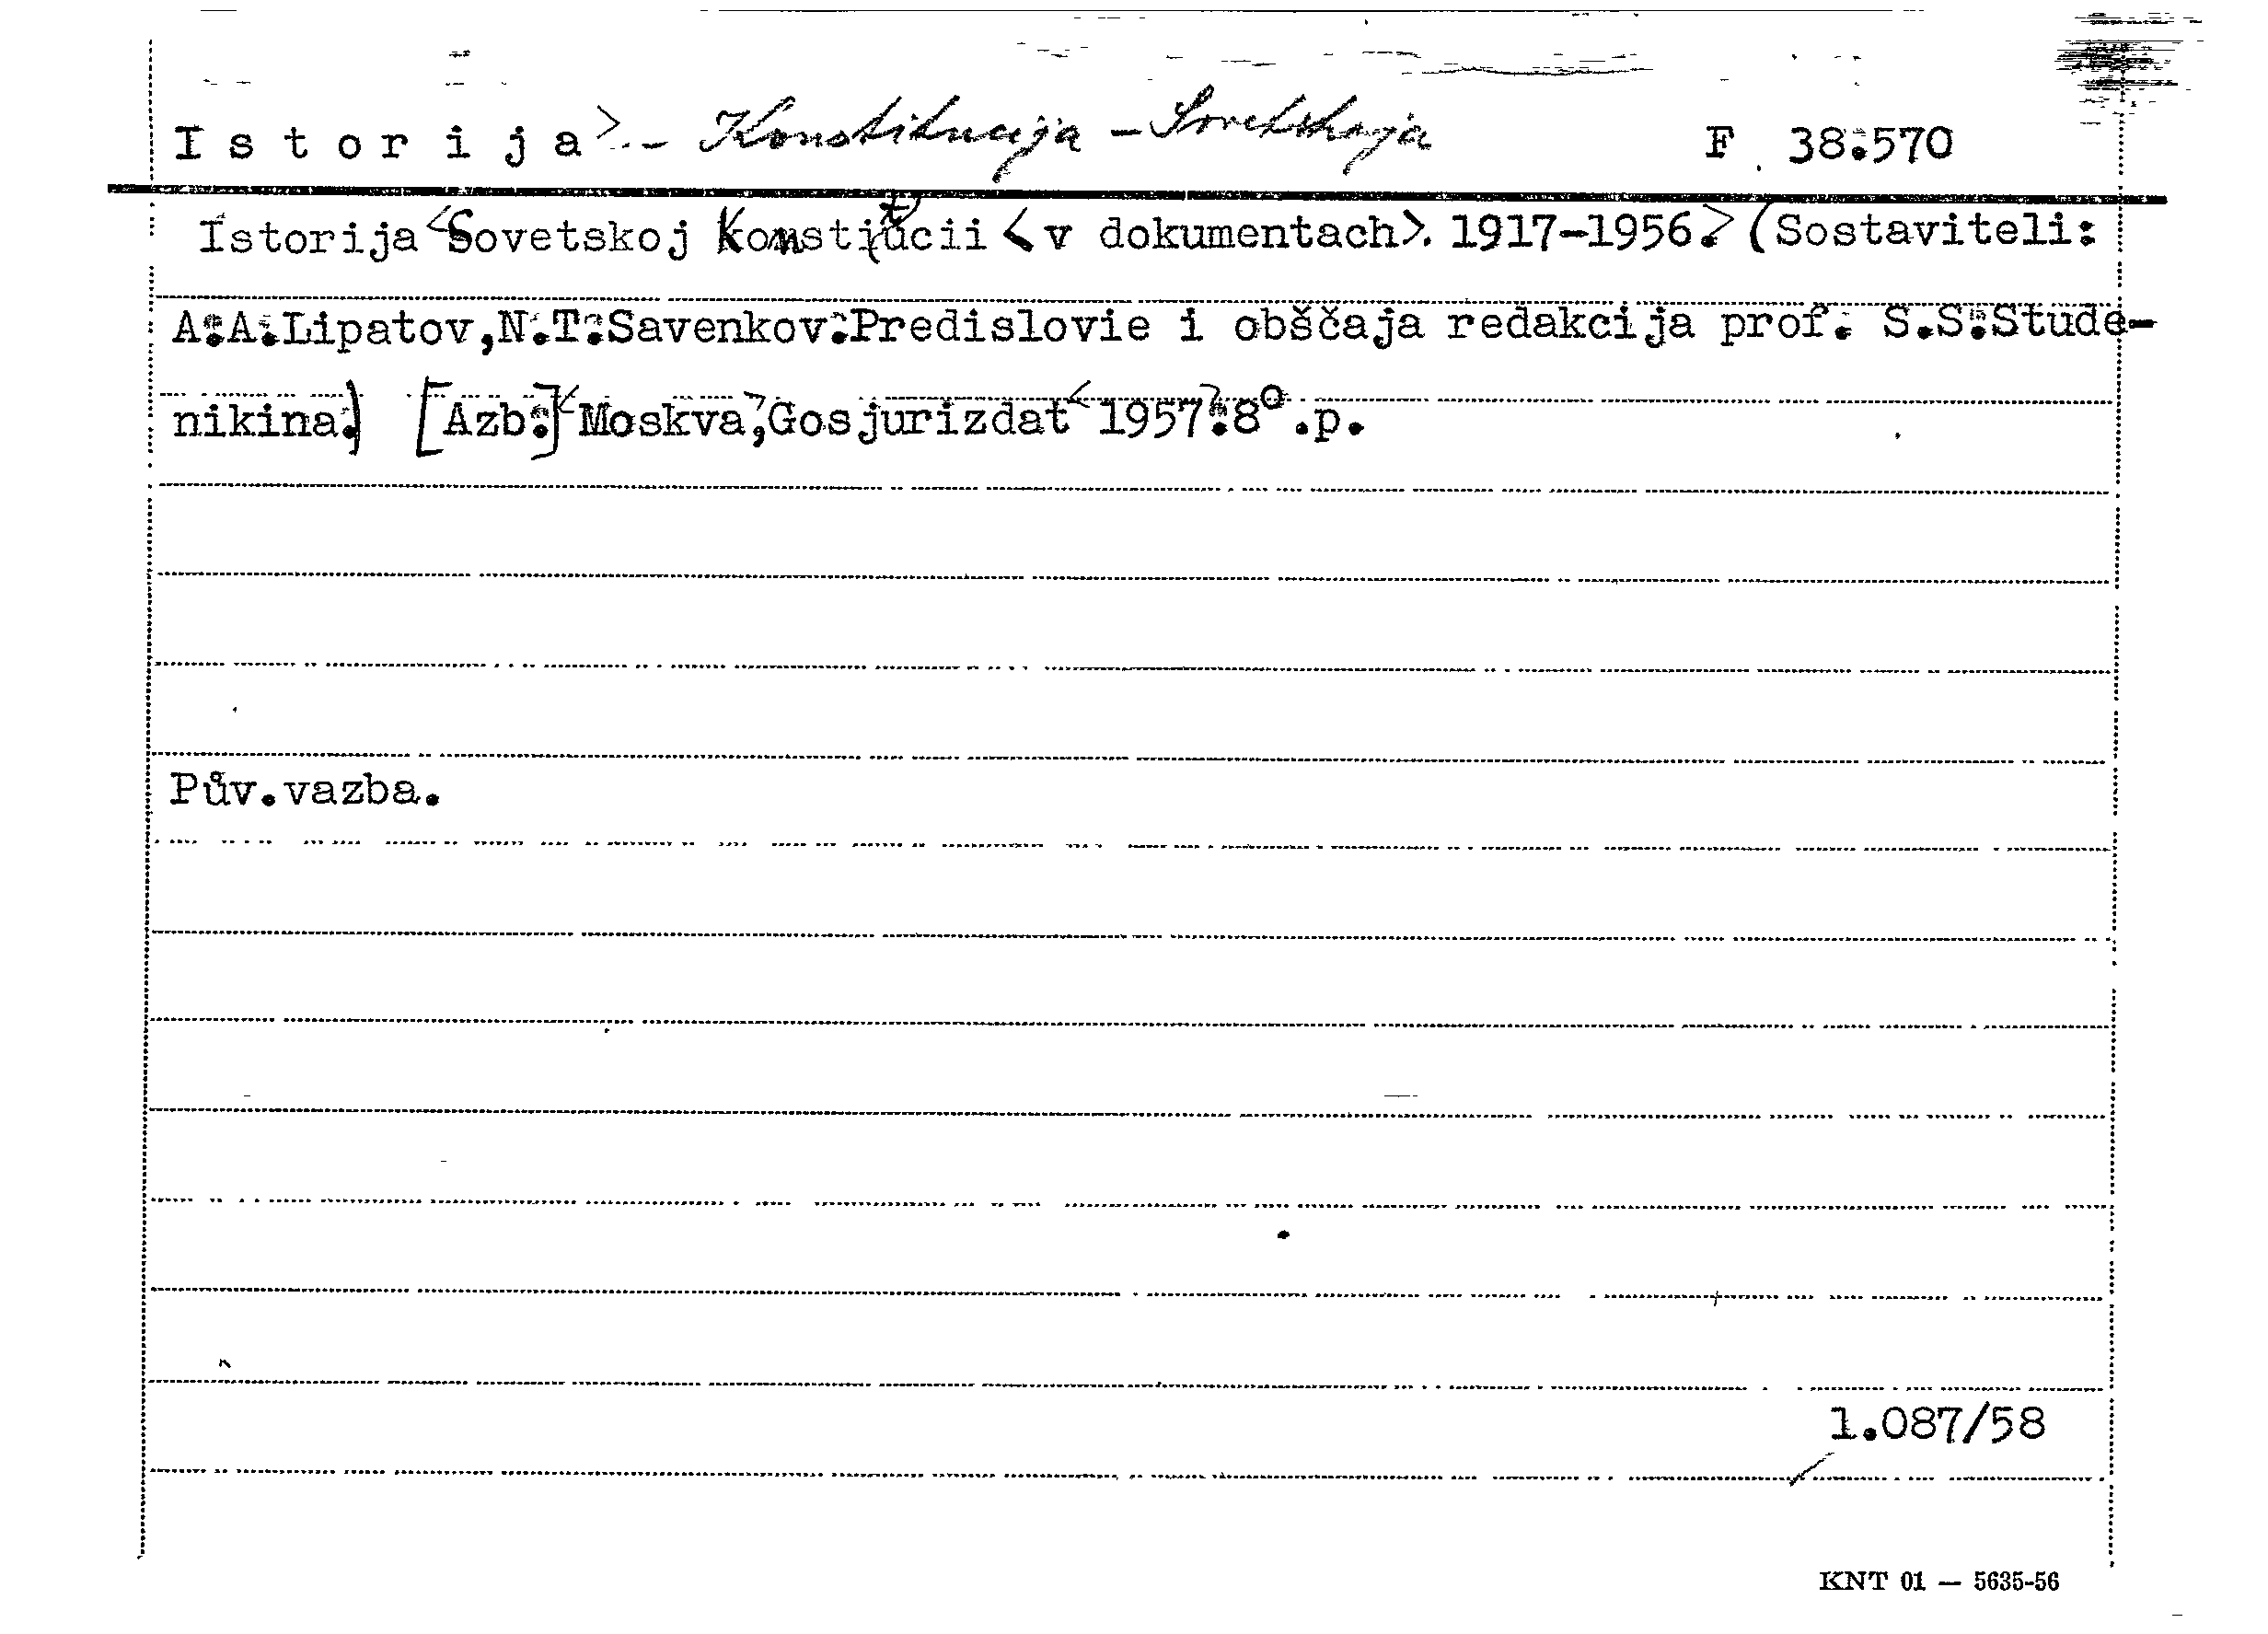 Istorija> - Konstitucija - Sovetskaja F 38.570
Istorija <Sovetskoj Konstitucii <v dokumentach>. 1917-1956.> (Sostaviteli:
A.A.Lipatov,N.T.Savenkov.Predislovie i obščaja redakcija prof. S.S.Stude-
nikina.) [Azb.] <Moskva,> Gosjurizdat <1957>.8°.p.
Pův.vazba.
1.087/58
KNT 01 — 5635-56